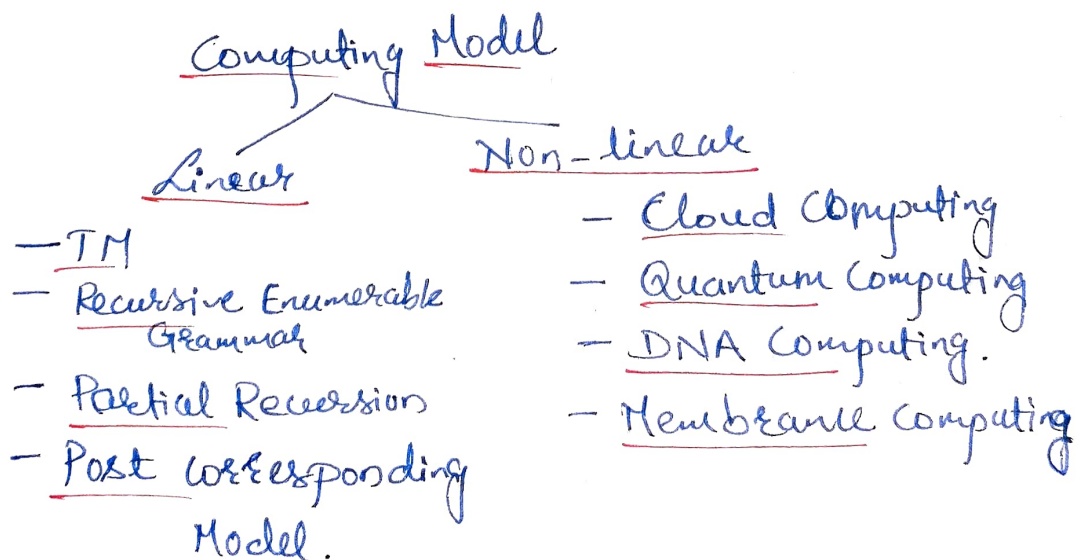 Computing Model
Linear
- TM
- Recursive Enumerable
Grammar
- Partial Recursion
- Post Corresponding
Model.
Non-linear
- Cloud Computing
- Quantum Computing
- DNA Computing.
- Membrance Computing